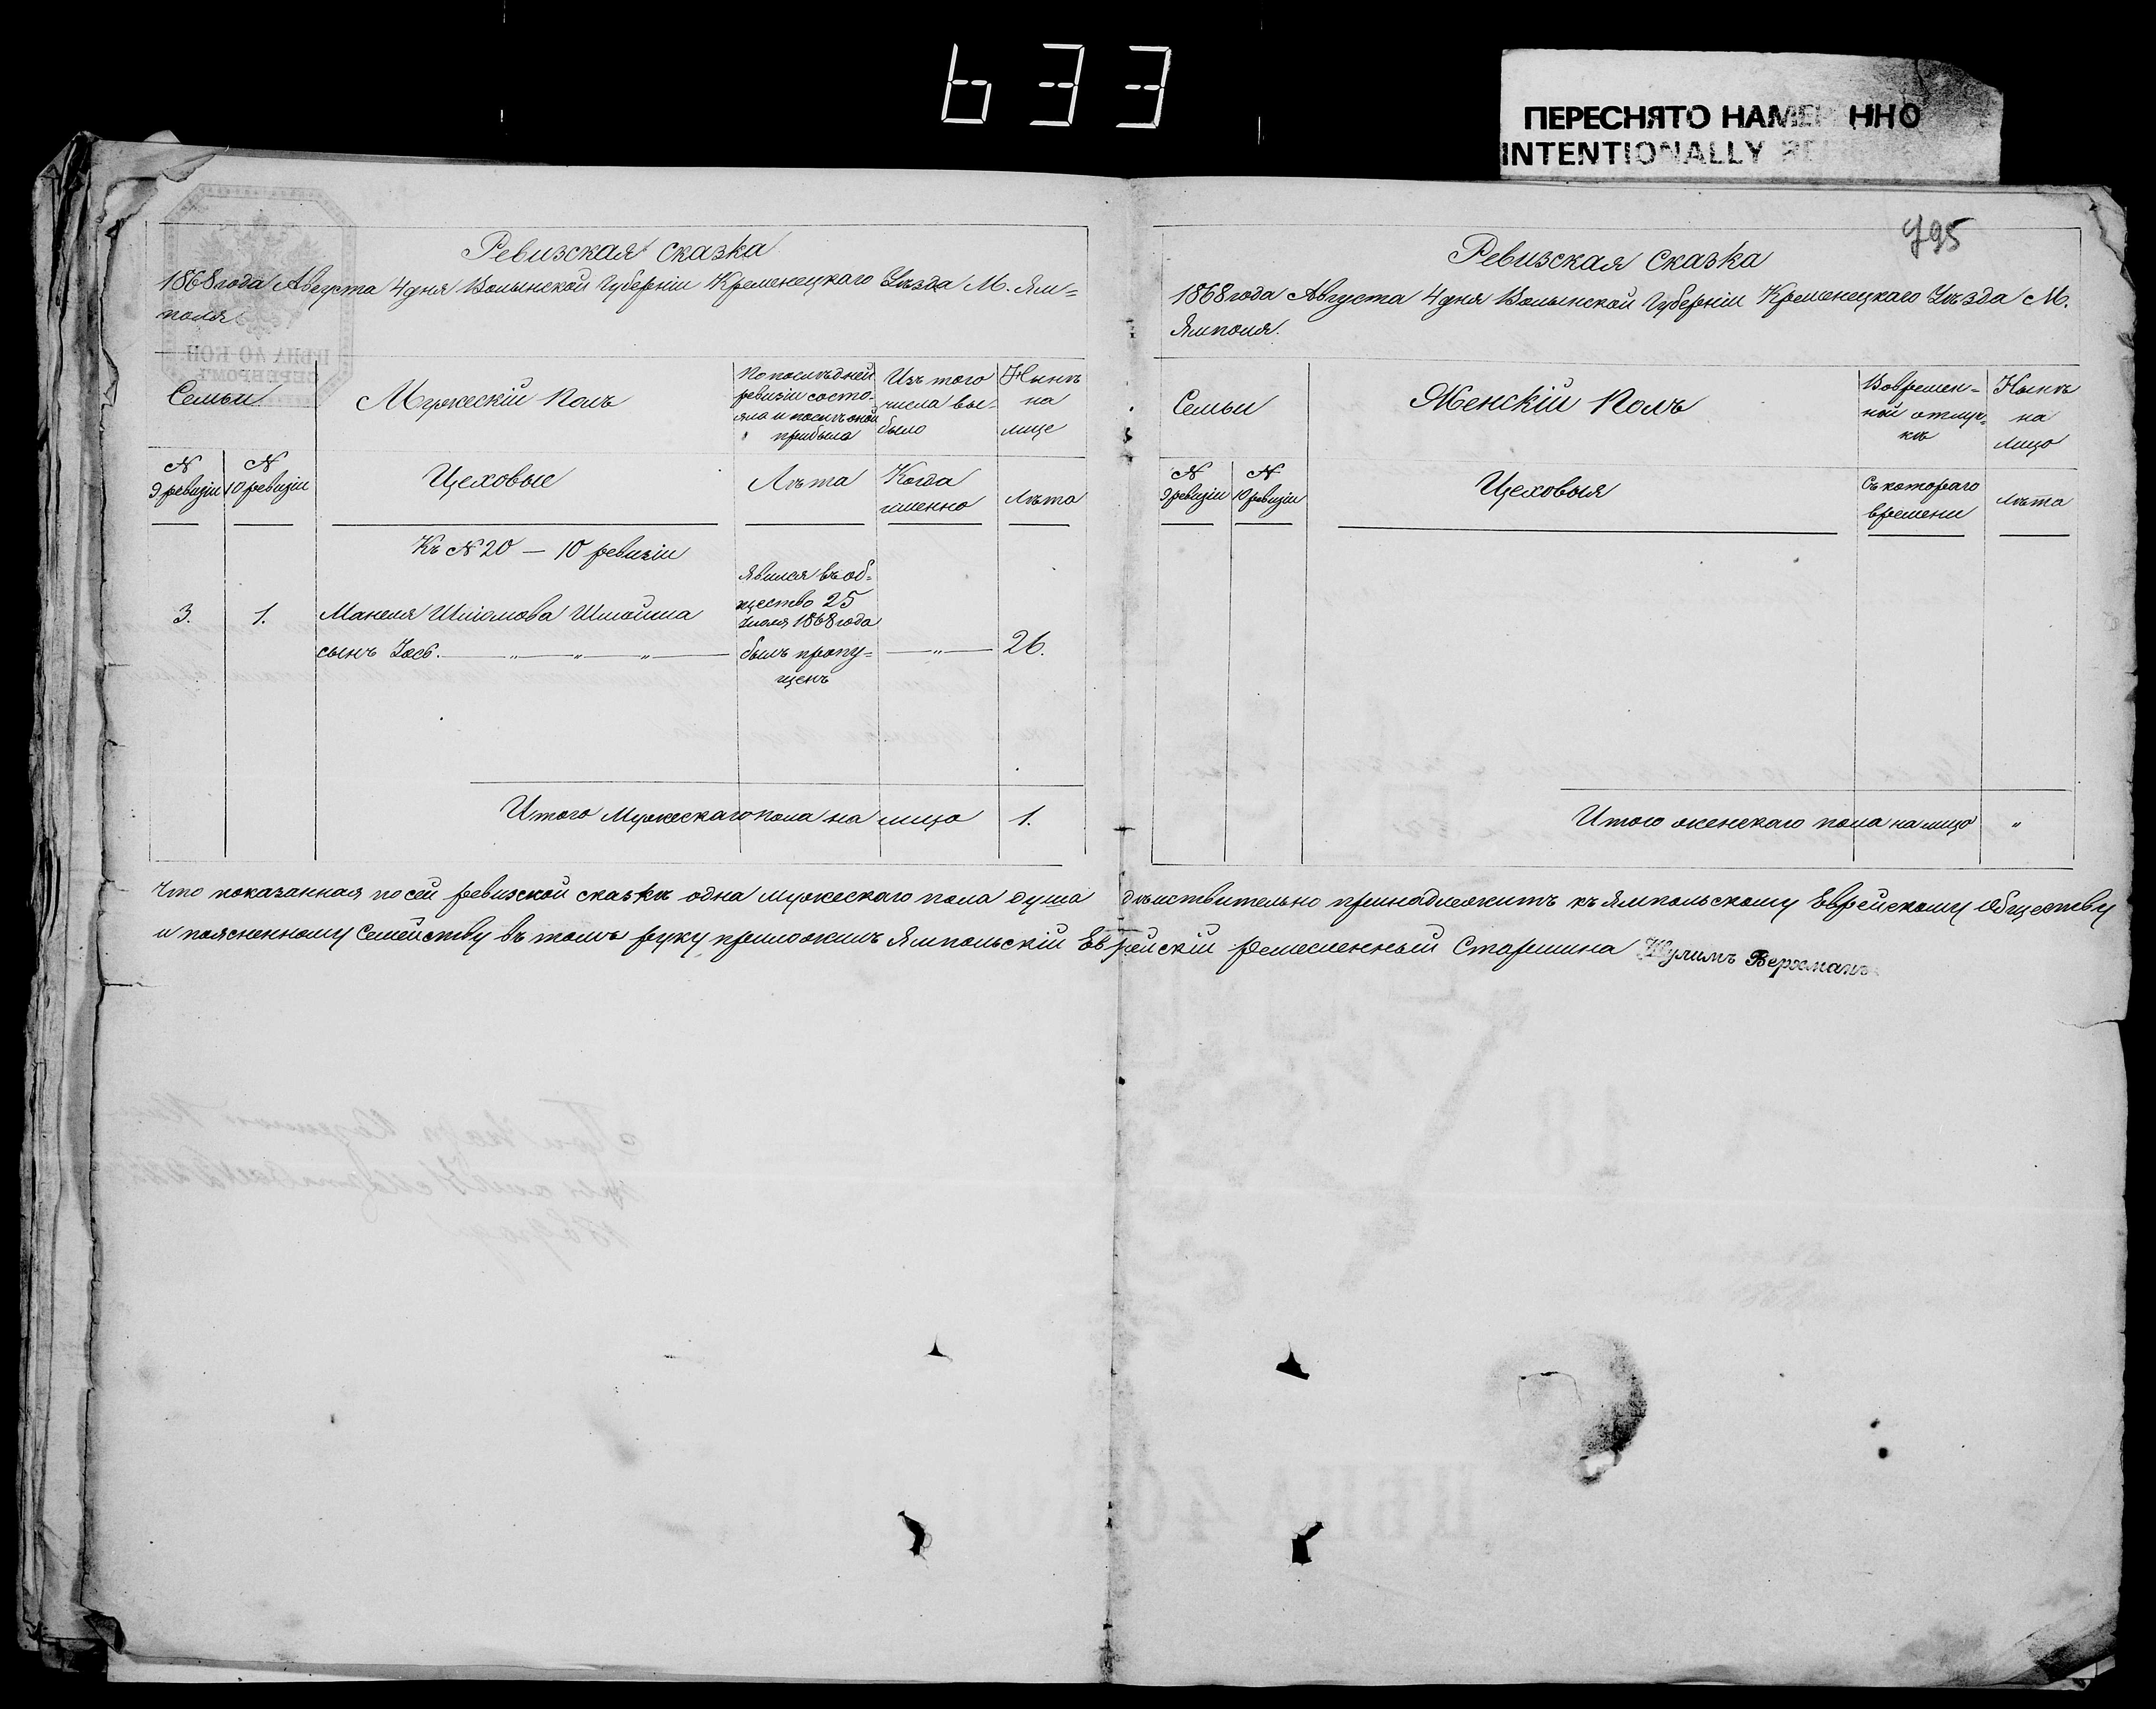 633
ПЕРЕСНЯТО НАМЕРЕННО
INTENTIONALLY RE
795
Ревизская сказка
1868 года Августа 4 дня Волынской Губерніи Кременецкаго Уѣзда М. Ям=
поля
ЦѢНА 40 КОП.
СЕРЕБРОМЪ
Семьи
Мужескій Полъ
По послѣдней
ревизіи состо-
яло и послѣ оной
прибыло
Изъ того
числа вы-
было
Нынѣ
на
лице
N
9 ревизіи
N
10 ревизіи
Цеховые
Лѣта
Когда
именно
Лѣта
Къ N 20 — 10 ревизіи
3.
1.
Манеля Шліомова Шмойша
сынъ Іось. — „ — „ — „ —
Явился въ об=
щество 25
Іюля 1868 года
былъ пропу=
щенъ
— „ —
26.
Итого Мужескаго пола на лицо 1.
Ревизская Сказка
1868 года Августа 4 дня Волынской Губерніи Кременецкаго Уѣзда М.
Ямполя.
Семьи
Женскій Полъ
Во времен=
ной отлуч=
кѣ
Нынѣ
на
лицо
N
9 ревизіи
N
10 ревизіи
Цеховыя
Съ котораго
времени
Лѣта
Итого женскаго пола на лицо „
Что показанная по сей ревизской сказкѣ одна мужескаго пола душа дѣйствительно принадлежитъ къ Ямпольскому Еврейскому Обществу
и поясненному Семейству въ томъ руку приложилъ Ямпольскій Еврейскій ремесленный Старшина Шулимъ Верхманъ
ЦѢНА 40